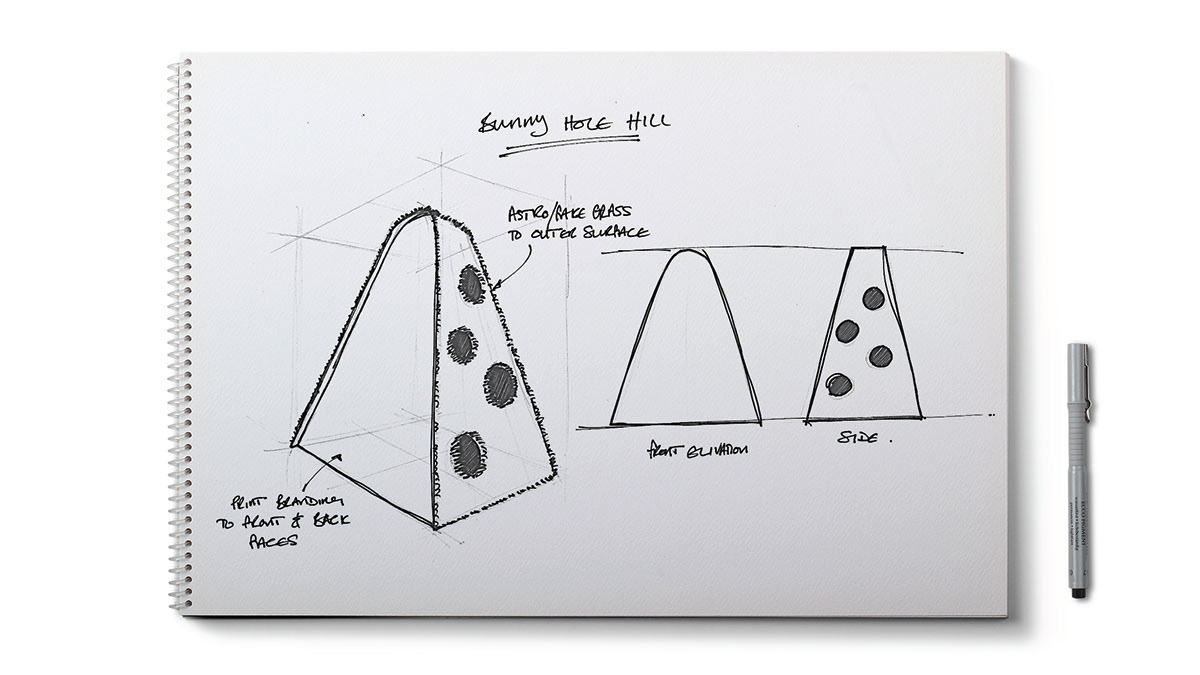 Bunny Hole Hill
ASTRO/FAKE GRASS
TO OUTER SURFACE
FRONT ELIVATION
SIDE.
PRINT BRANDING
TO FRONT & BACK
FACES
ECCO PIGMENT